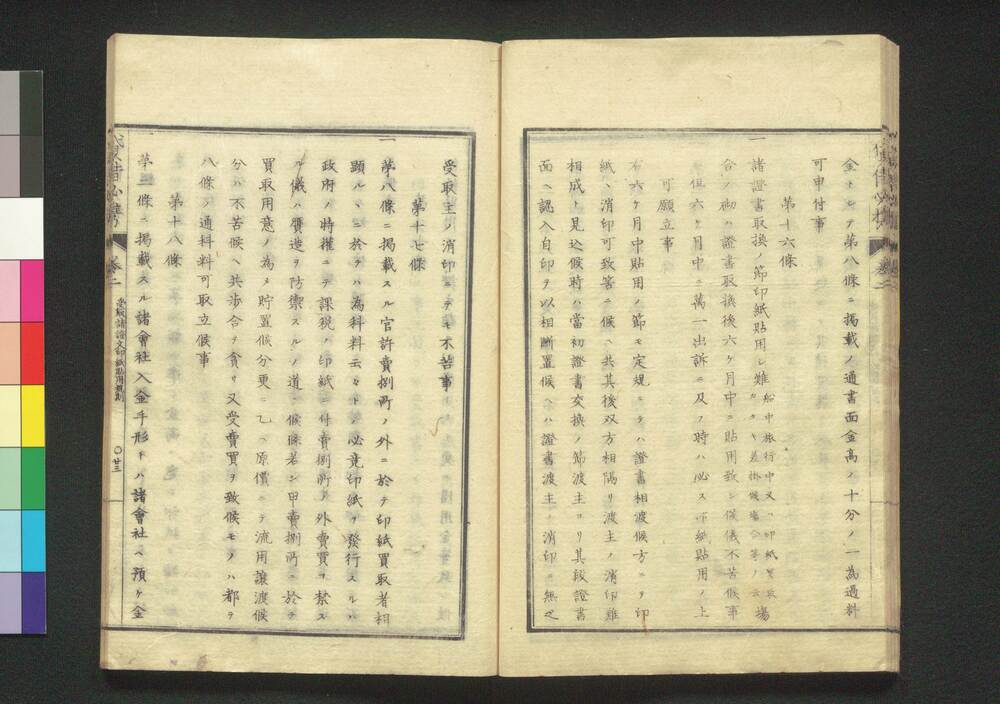 金トシテ第八條ニ掲載ノ通書面金高ノ十分ノ一為過料
可申付事
第十六條
一 諸證書取換ノ節印紙貼用シ難 船中旅行中又ハ印紙買取場 カタク差掛候場合等ノ云
合ノ砌ハ證書取換後六ケ月中ニ貼用致シ候儀不苦候事
但六ケ月中ニ萬一出訴ニ及フ時ハ必ス印紙貼用ノ上
可願立事
右六ケ月中貼用ノ節モ定規ニテハ證書相渡候方ニリ印
紙ヘ消印可致筈ニ候ヘ共其後双方相隔リ渡主ノ消印難
相成ト見込候時ハ當初證書交換ノ節渡主ヨリ其段證書
面ヘ認入自印ヲ以相斷置候ヘハ證書渡主ノ消印ハ無之
受取主ノ消印ニテモ不苦事
第十七條
一 第八條ニ掲載スル官許賣捌所ノ外ニ於テ印紙買取者相
顕ルヽニ於テハ為科料云々ト必竟印紙ヲ發行スルハ
政府ノ特權ニテ課税ノ印紙ニ付賣捌所外賣買ヲ禁ス
ル儀ハ贋造ヲ防禦スルノ道ニ候條若シ甲賣捌所ニ於テ
買取用意ノ為メ貯置候分更ニ乙ヘ原價ニテ流用譲渡候
分ハ不苦候ヘ共歩合ヲ貪リ又受賣買ヲ致候モノハ都テ
八條ノ通科料可取立候事
第十八條
第三條ニ掲載スル諸會社入金手形トハ諸會社ヘ預ケ金
巻二
受取諸證文印紙貼用規則
〇廿三